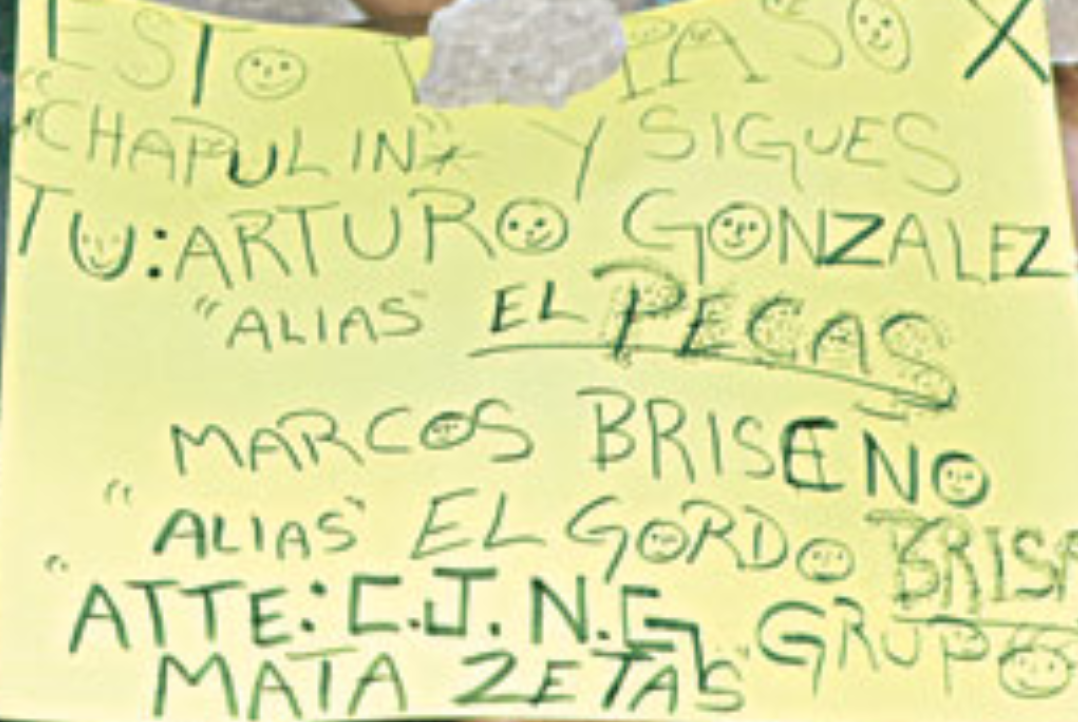 ESTO PASO X
"CHAPULIN" Y SIGUES
TU: ARTURO GONZALEZ
"ALIAS" EL PECAS
MARCOS BRISENO
"ALIAS" EL GORDO BRISA
"ATTE: C.J.N.G, GRUPO
MATA ZETAS"